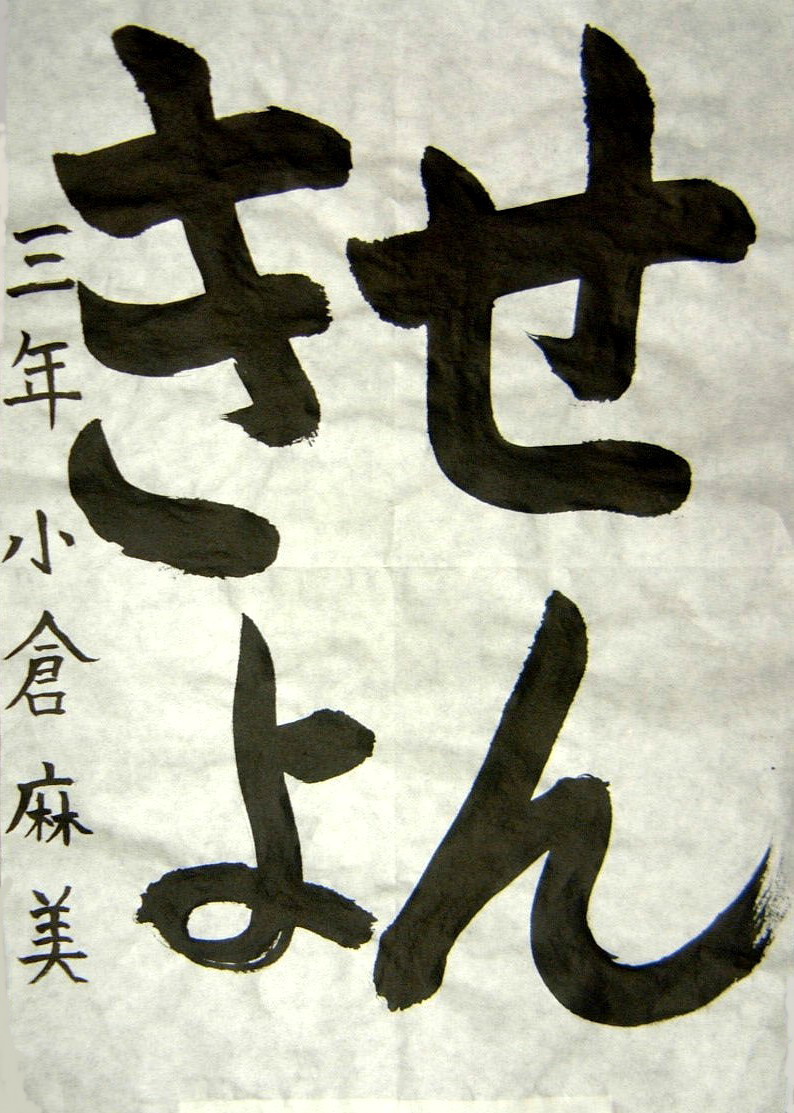 せん
きよ
三年 小倉麻美